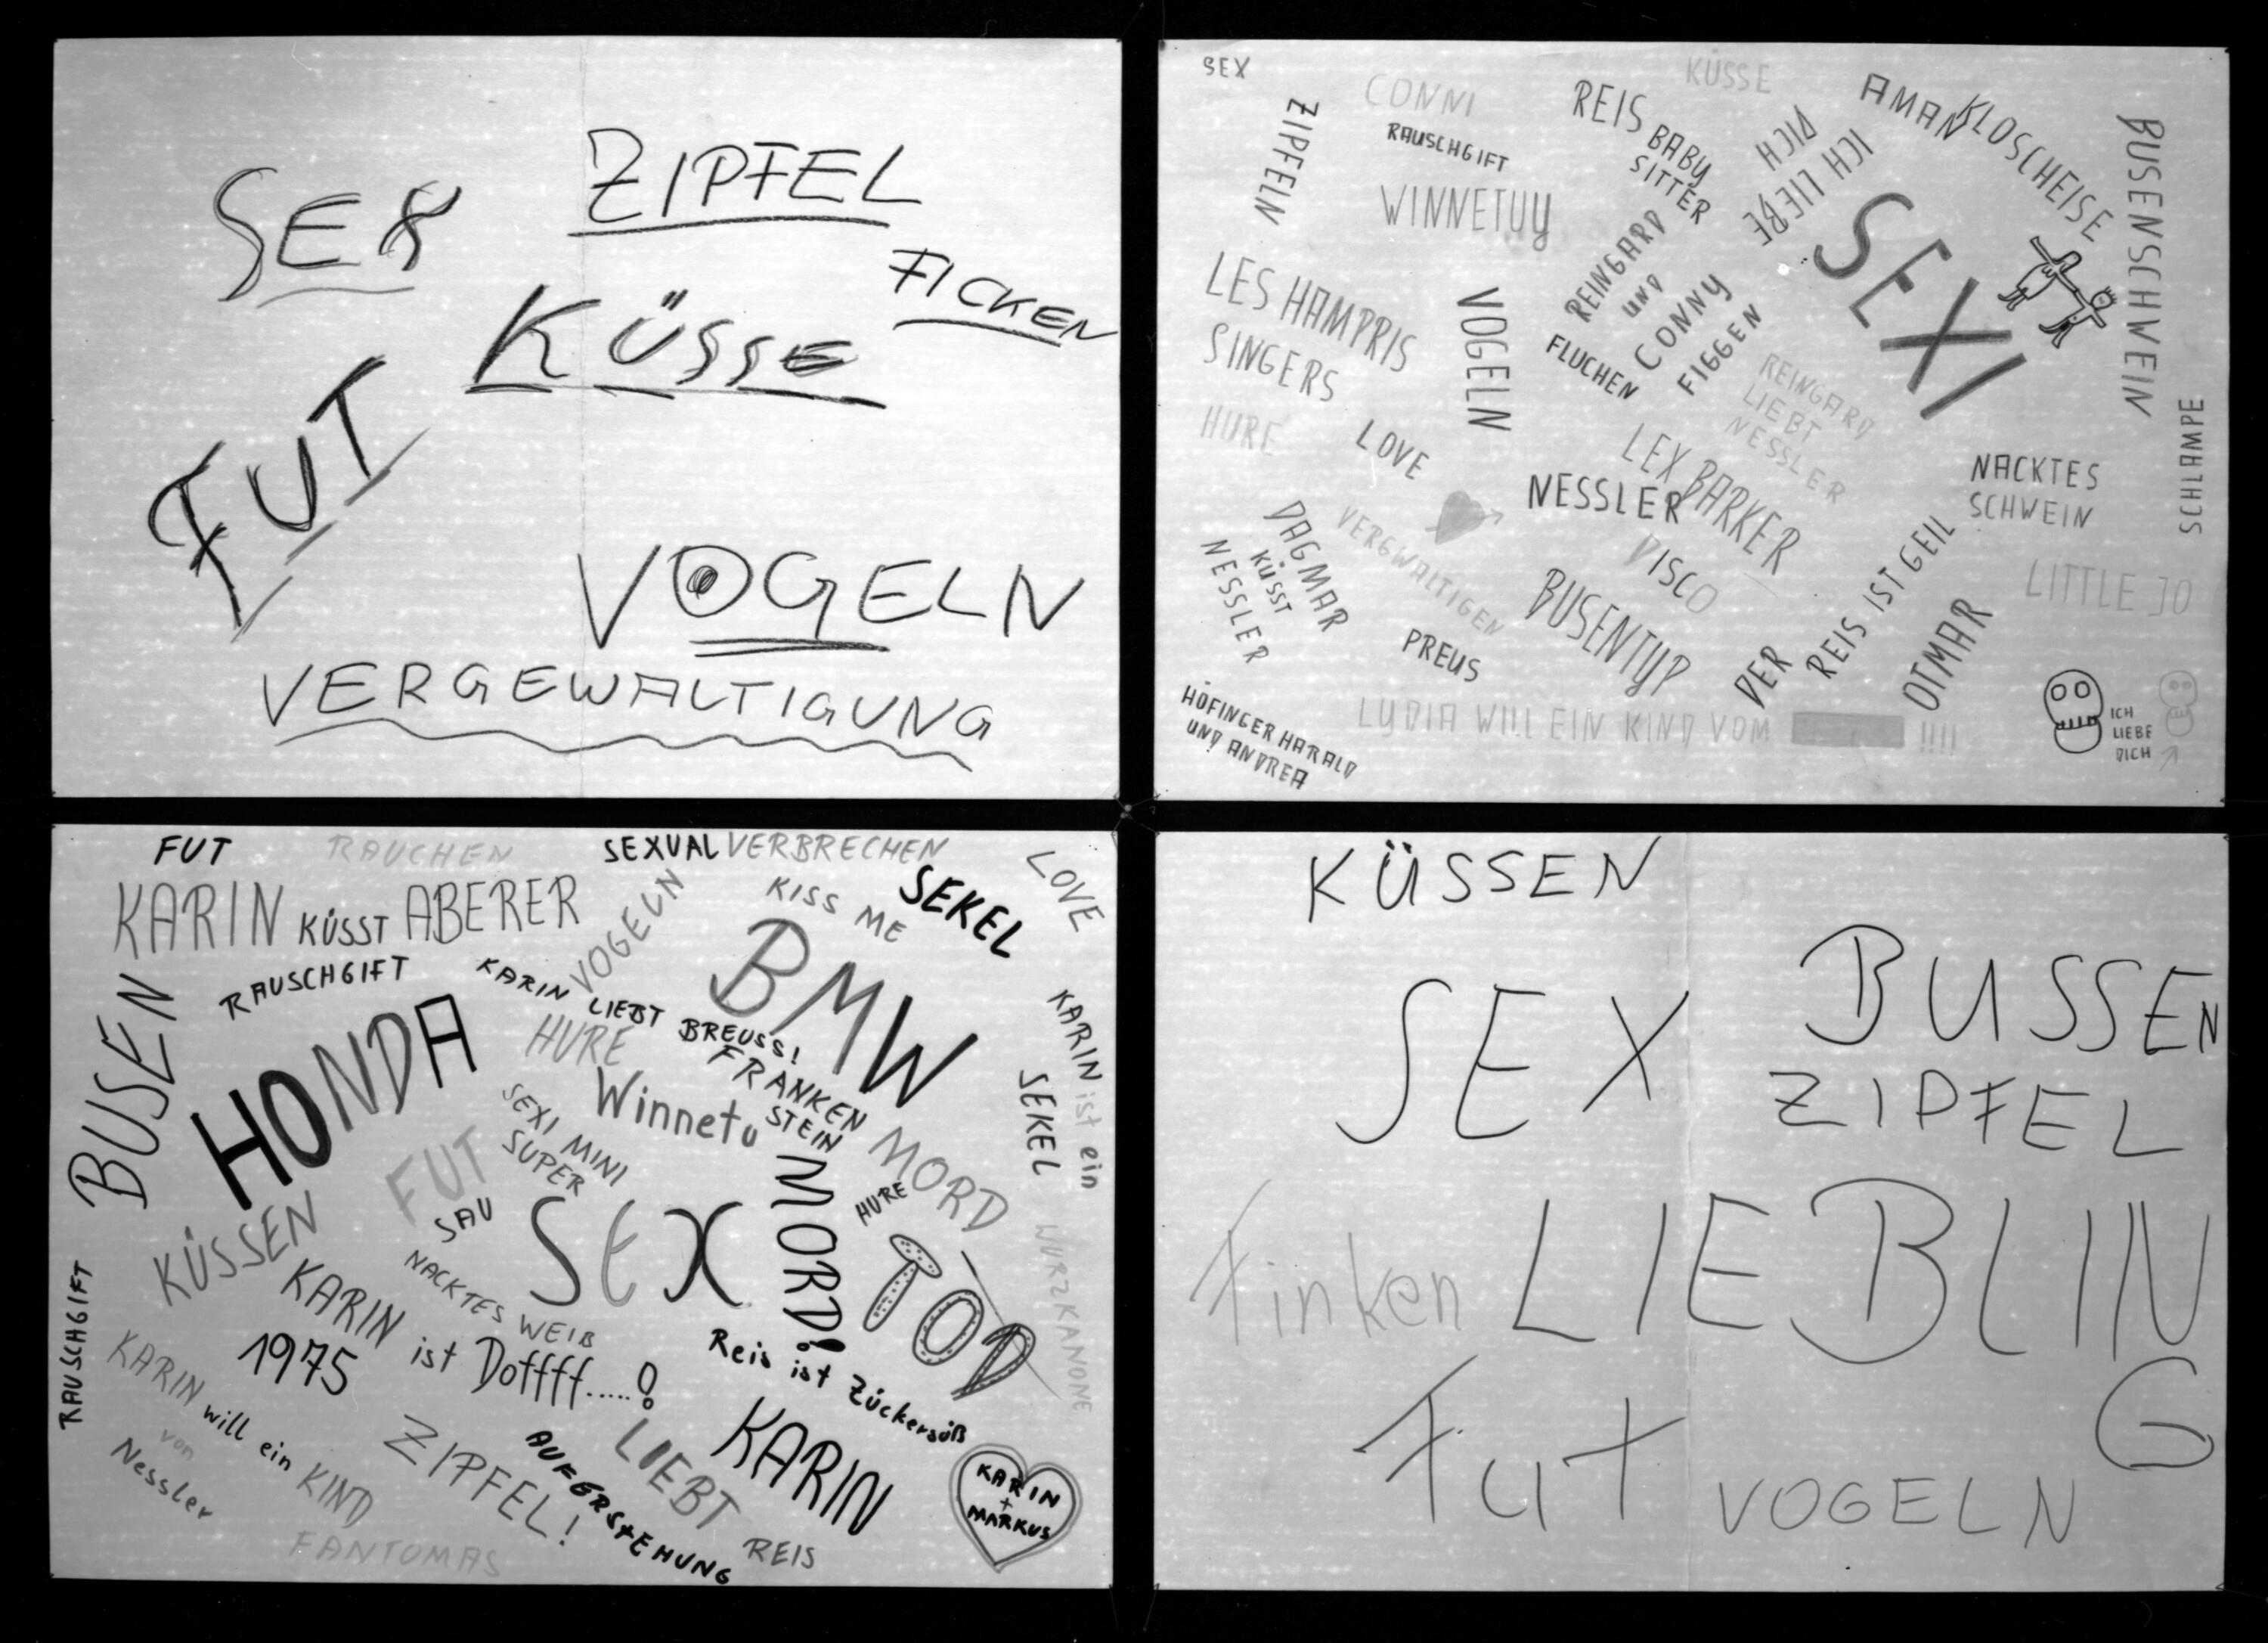 SEX
ZIPFEL
FICKEN
KÜSSE
FUT
VOGELN
VERGEWALTIGUNG
SEX
CONNI
KÜSSE
REIS
BABY
SITTER
DICH
ICH LIEBE
AMAN
KLOSCHEISE
BUSENSCHWEIN
ZIPFELN
RAUSCHGIFT
WINNETUY
REINGARD
UND
CONNY
FIGGEN
FLUCHEN
SEXI
LES HAMPRIS
SINGERS
VOGELN
REINGARD
LIEBT
NESSLER
HURE
LOVE
LEX BARKER
NESSLER
NACKTES
SCHWEIN
SCHLAMPE
DAGMAR
KÜSST
NESSLER
VERGWALTIGEN
DISCO
BUSENTYP
PREUS
DER
REIS IST GEIL
OTMAR
LITTLE JO
HÖFINGER HARALD
UND ANDREA
LYDIA WILL EIN KIND VOM !!!!
ICH
LIEBE
DICH
FUT
RAUCHEN
SEXUALVERBRECHEN
LOVE
KARIN KÜSST ABERER
VOGELN
KISS ME
SEKEL
BUSEN
RAUSCHGIFT
KARIN LIEBT BREUSS!
BMW
HONDA
HURE
FRANKEN
STEIN
Winnetu
KARIN ist ein
SEKEL
SEXI MINI
SUPER
FUT
SAU
MORD
MORD!
HURE
SEX
KÜSSEN
NACKTES WEIB
TOD
WURZKANONE
RAUSCHGIFT
KARIN ist Doffff.....!
1975
Reis ist Zückersüß
KARIN will ein KIND
von
Nessler
ZIPFEL!
AUFERSTEHUNG
KARIN
LIEBT
REIS
KARIN
+
MARKUS
FANTOMAS
KÜSSEN
SEX
BUSSEN
ZIPFEL
Finken
LIEBLIN
G
Fut
VOGELN